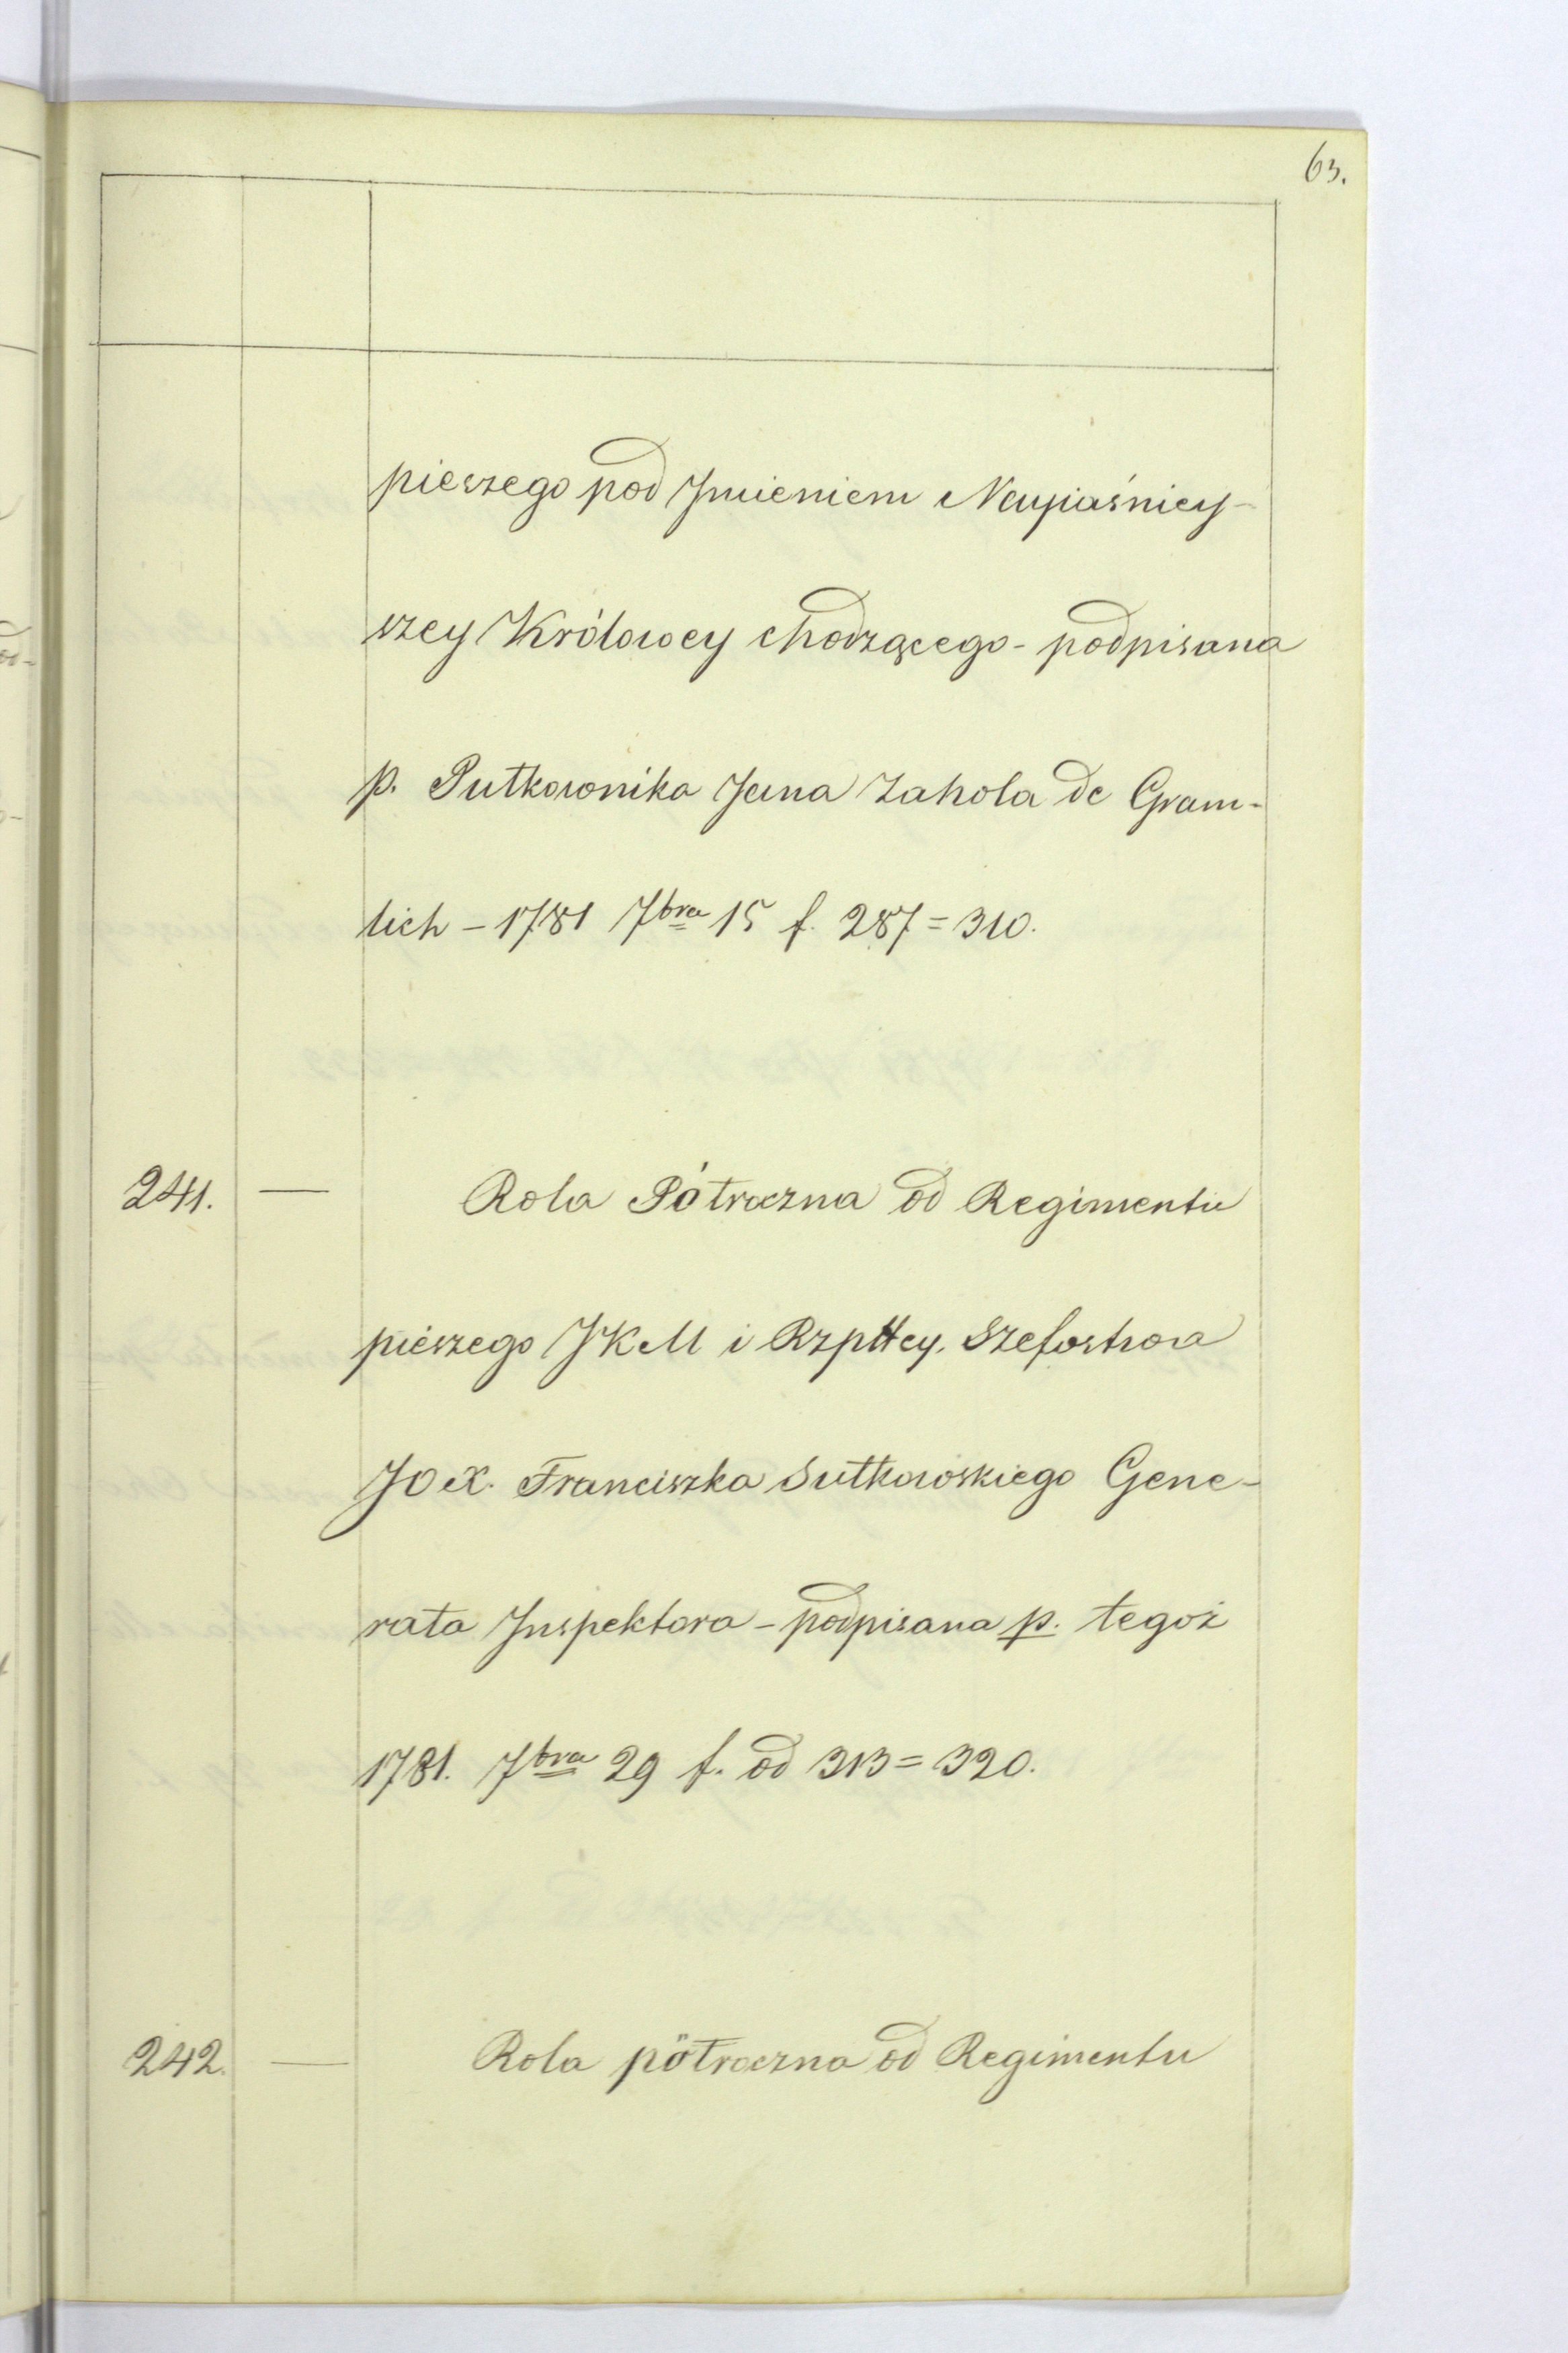 63.
pieszego pod Jmieniem Nayiaśniey-
szey Królowey chodzącego - podpisana
p. Pułkownika Jana Zahola de Gram-
lich - 1781 7bra 15 f. 287 = 310.
241. — Rola Półroczna od Regimentu
pieszego JKM i Rzpltey. Szefostwa
JOX. Franciszka Sułkowskiego Gene-
rała Jnspektora - podpisana p. tegoż
1781. 7bra 29 f. od 313 = 320.
242. — Rola półroczna od Regimentu